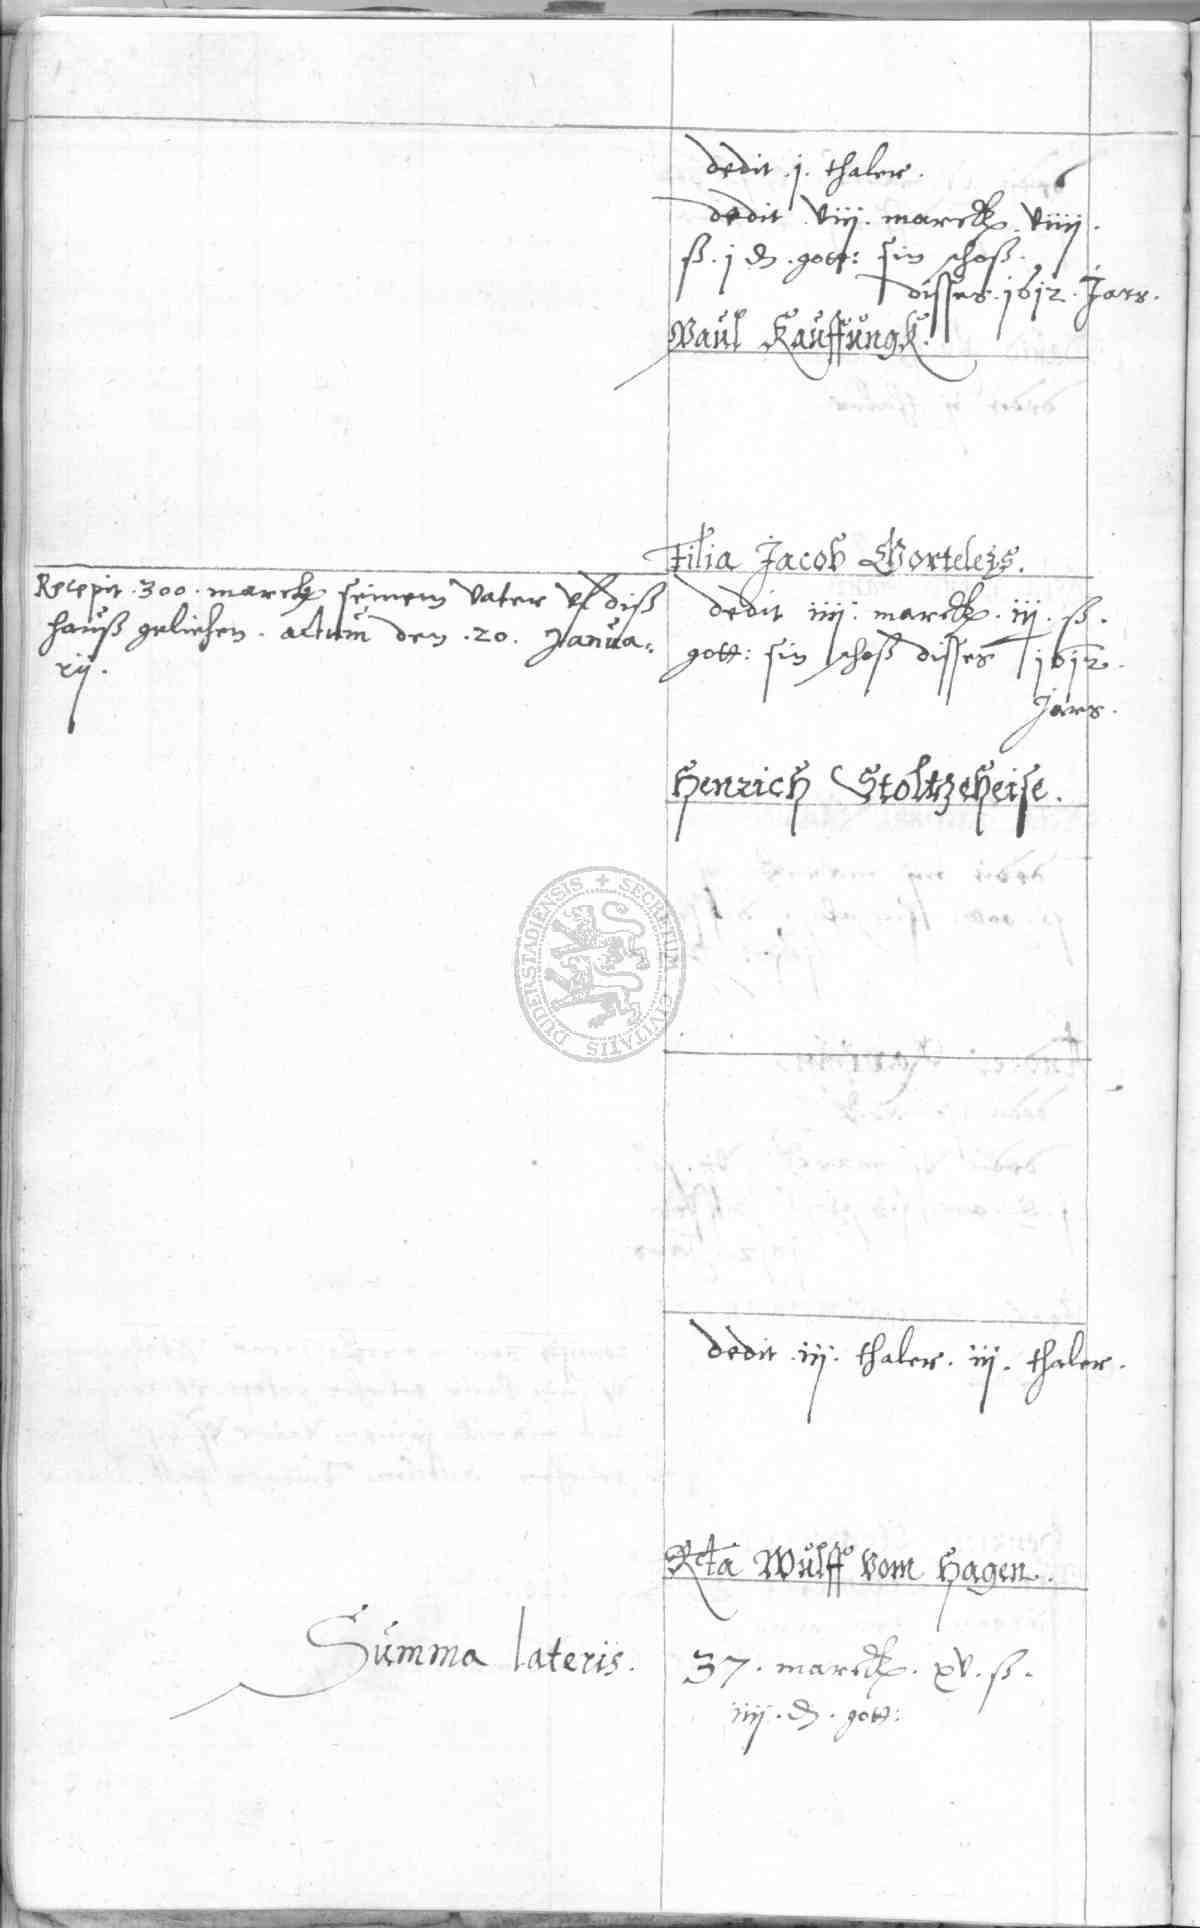 dedit .j. thaler.
dedit viij. marck. viiij.
ß. j ₰. gott: sin schoß.
disses .1612. Jars.
Paul Kauffungk.
Filia Jacob Wortelers.
Recepit .300. marck seinem Vater uf diß
hauß geliehen. actum den .20. Janua=
rij.
dedit iiij. marck. iij. ß.
gott: sin schoß disses 1612.
Jars.
Henrich Stoltzeheise.
DUDERSTADIENSIS + SECRETUM CIVITATIS
dedit .iij. thaler. iij. thaler.
Rcta Wulff vom Hagen.
Summa lateris.
37. marck. xv. ß.
iiij. ₰. gott: